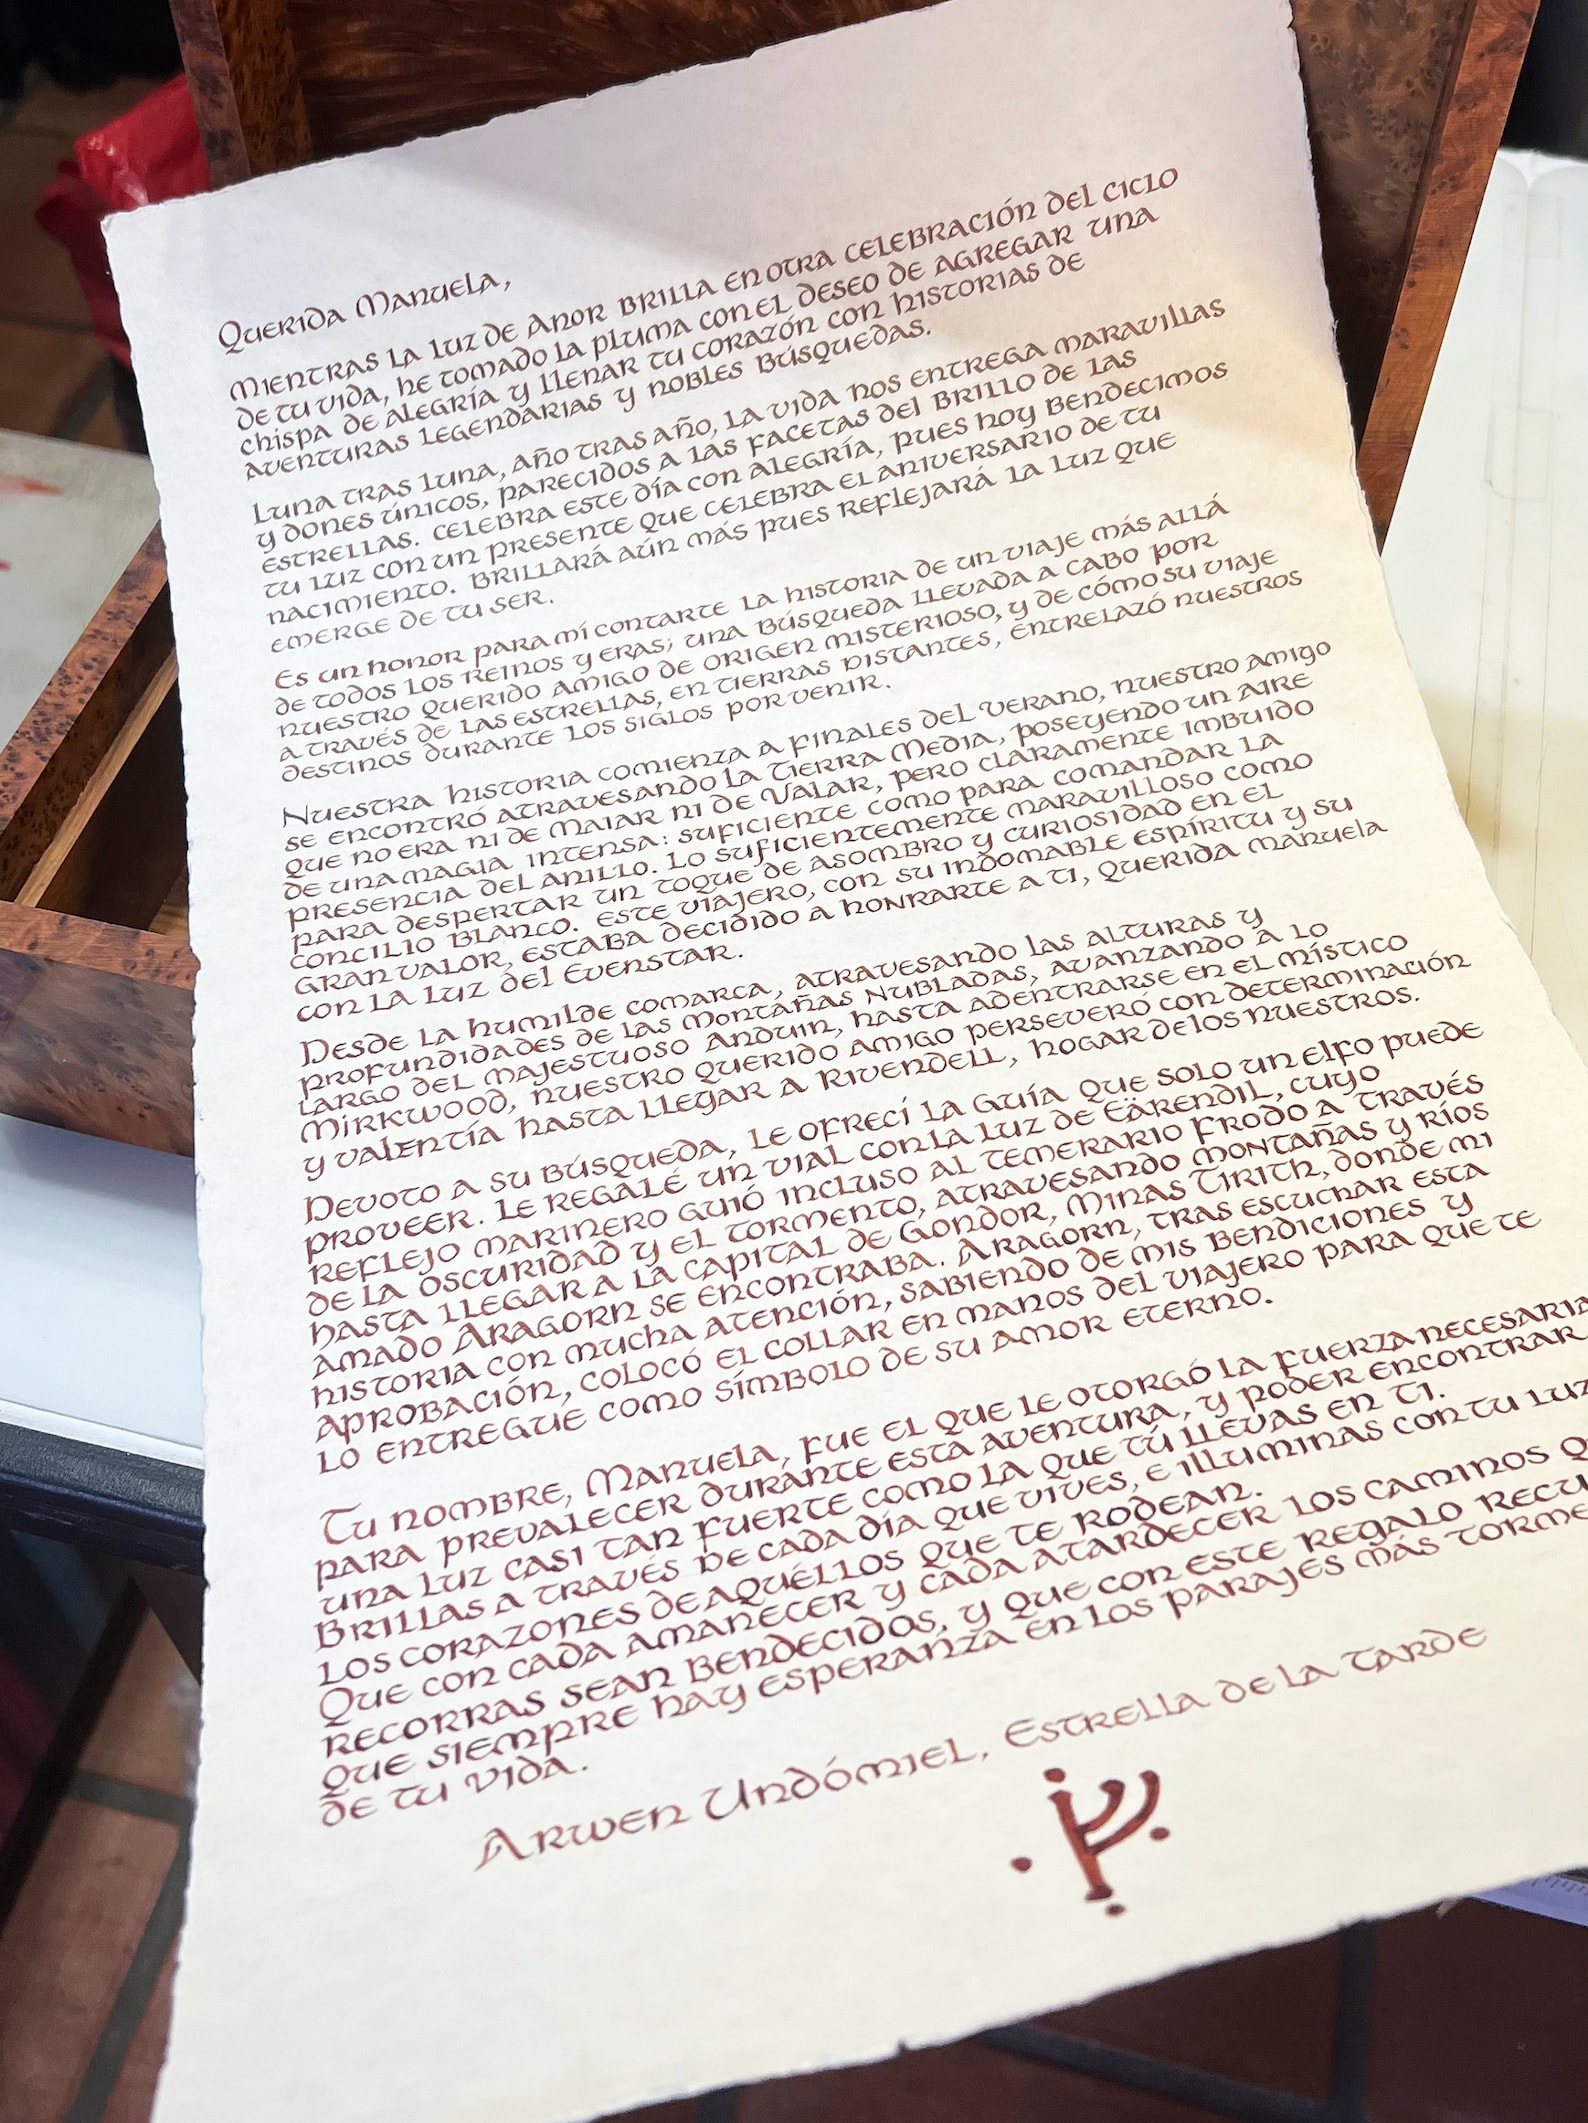 Querida Manuela,
Mientras la luz de Anor brilla en otra celebración del ciclo
de tu vida, he tomado la pluma con el deseo de agregar una
chispa de alegría y llenar tu corazón con historias de
aventuras legendarias y nobles búsquedas.
Luna tras luna, año tras año, la vida nos entrega maravillas
y dones únicos, parecidos a las facetas del brillo de las
estrellas. Celebra este día con alegría, pues hoy bendecimos
tu luz con un presente que celebra el aniversario de tu
nacimiento. Brillará aún más pues reflejará la luz que
emerge de tu ser.
Es un honor para mí contarte la historia de un viaje más allá
de todos los reinos y eras; una búsqueda llevada a cabo por
nuestro querido amigo de origen misterioso, y de cómo su viaje
a través de las estrellas, en tierras distantes, entrelazó nuestros
destinos durante los siglos por venir.
Nuestra historia comienza a finales del verano, nuestro amigo
se encontró atravesando la Tierra Media, poseyendo un aire
que no era ni de Maiar ni de Valar, pero claramente imbuido
de una magia intensa: suficiente como para comandar la
presencia del anillo. Lo suficientemente maravilloso como
para despertar un toque de asombro y curiosidad en el
Concilio Blanco. Este viajero, con su indomable espíritu y su
gran valor, estaba decidido a honrarte a ti, querida Manuela
con la luz del Evenstar.
Desde la humilde comarca, atravesando las alturas y
profundidades de las Montañas Nubladas, avanzando a lo
largo del majestuoso Anduin, hasta adentrarse en el místico
Mirkwood, nuestro querido amigo perseveró con determinación
y valentía hasta llegar a Rivendell, hogar de los nuestros.
Devoto a su búsqueda, le ofrecí la guía que solo un elfo puede
proveer. Le regalé un vial con la luz de Eärendil, cuyo
reflejo marinero guió incluso al temerario Frodo a través
de la oscuridad y el tormento, atravesando montañas y ríos
hasta llegar a la capital de Gondor, Minas Tirith, donde mi
amado Aragorn se encontraba. Aragorn, tras escuchar esta
historia con mucha atención, sabiendo de mis bendiciones y
aprobación, colocó el collar en manos del viajero para que te
lo entregue como símbolo de su amor eterno.
Tu nombre, Manuela, fue el que le otorgó la fuerza necesaria
para prevalecer durante esta aventura, y poder encontrar
una luz casi tan fuerte como la que tú llevas en ti.
Brillas a través de cada día que vives, e illuminas con tu luz
los corazones de aquéllos que te rodean.
Que con cada amanecer y cada atardecer los caminos
recorras sean bendecidos, y que con este regalo
que siempre hay esperanza en los parajes más
de tu vida.
Arwen Undómiel, Estrella de la Tarde